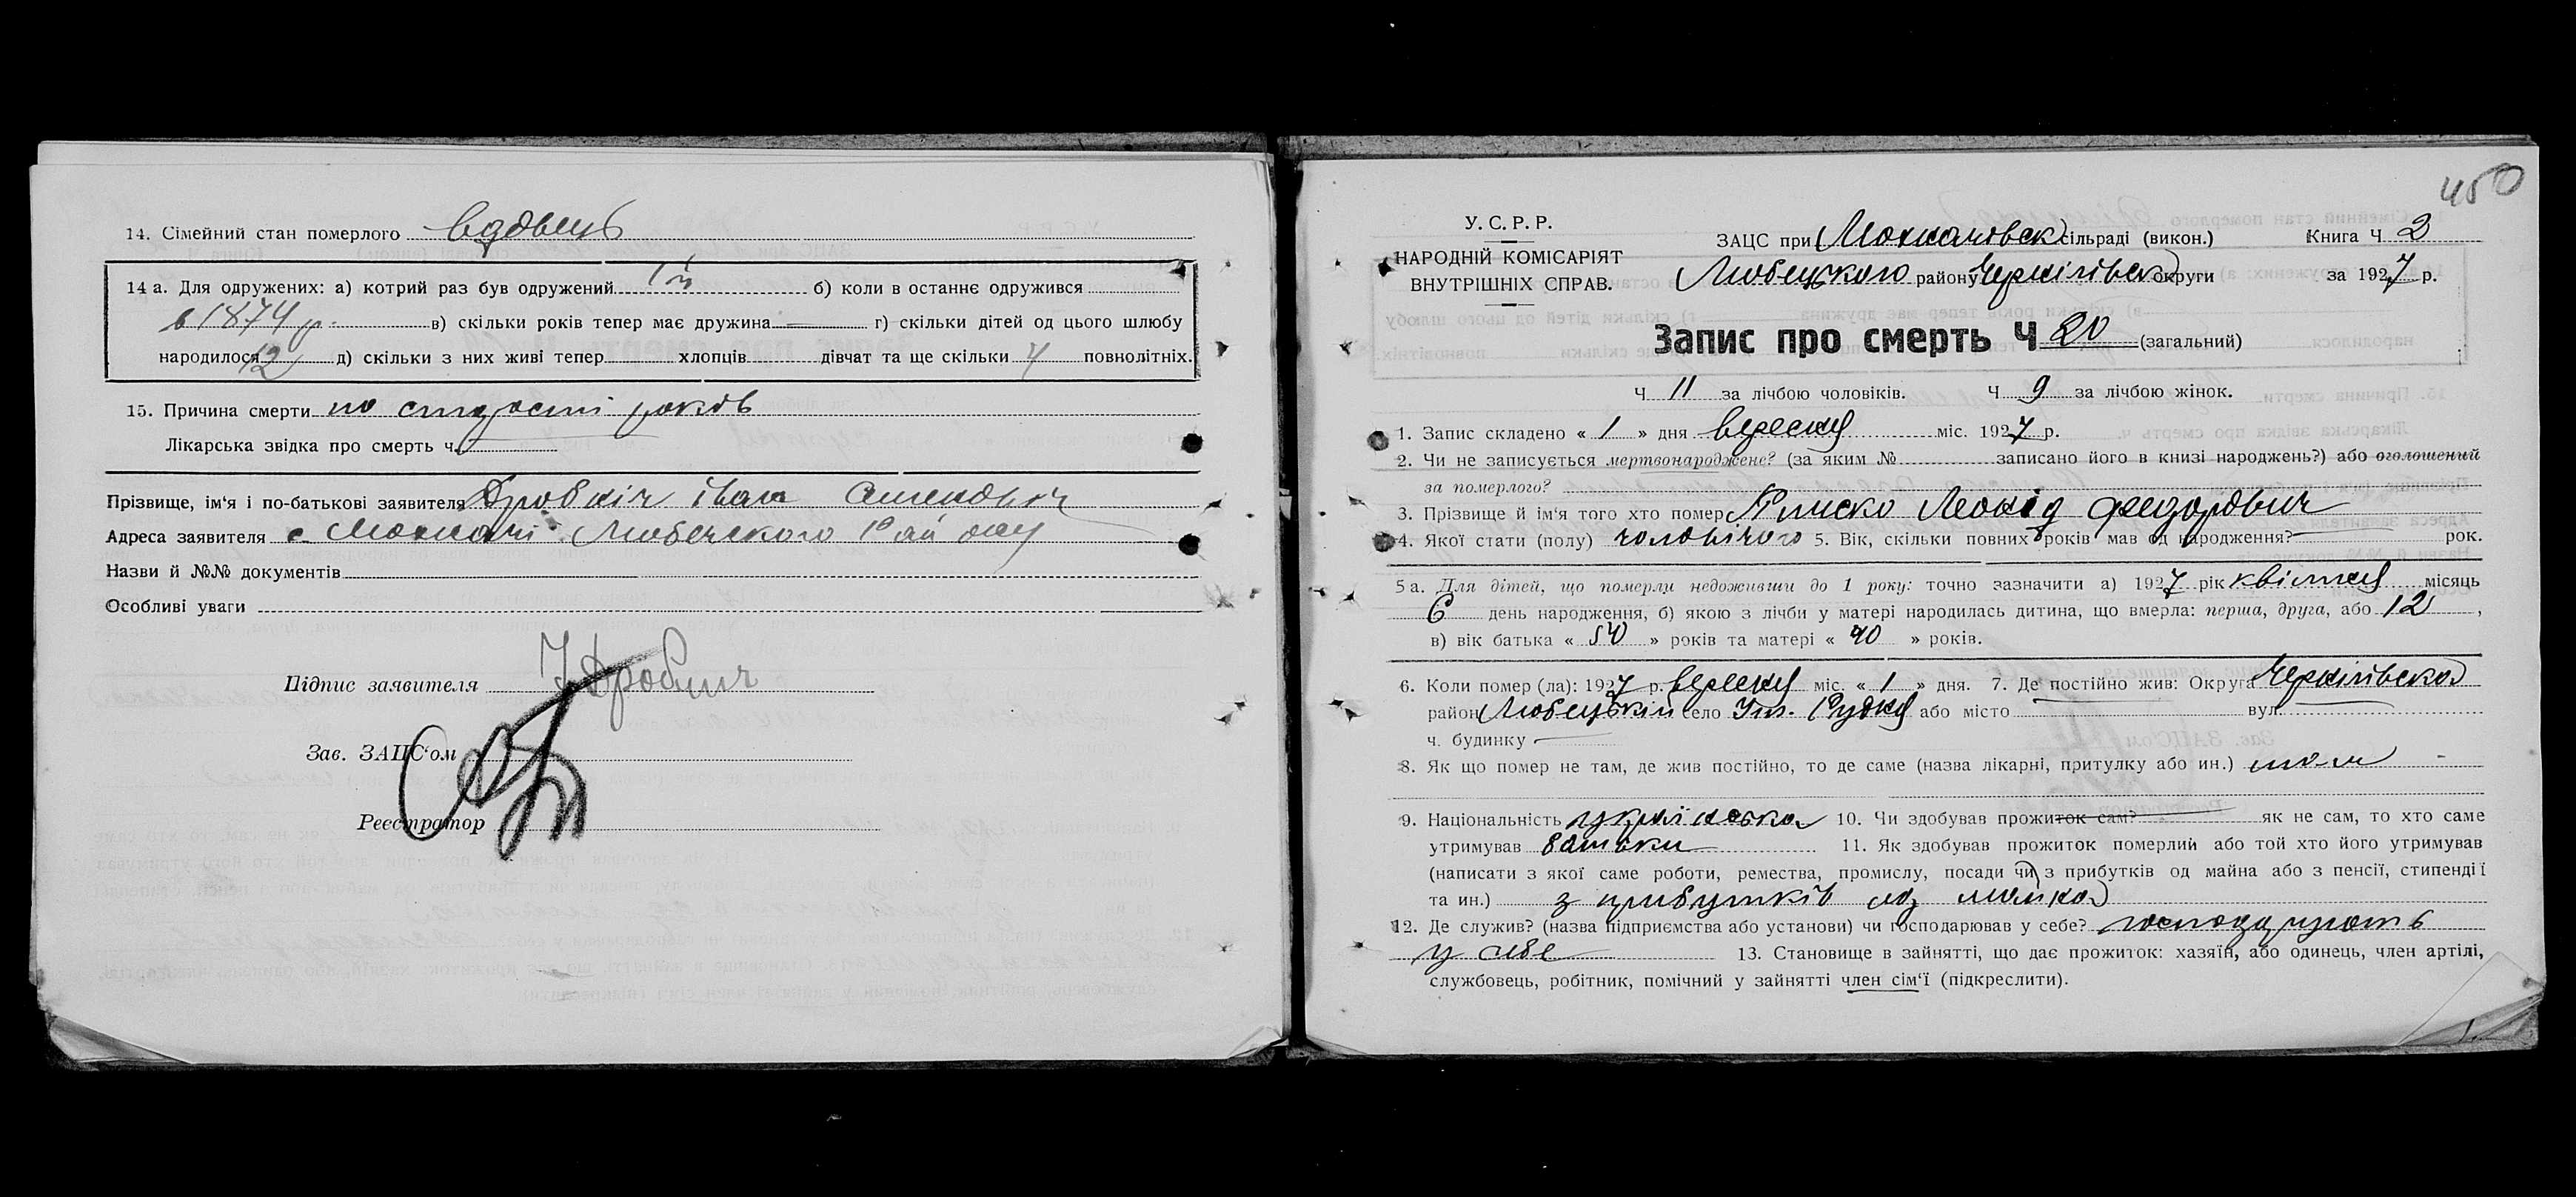 14. Сімейний стан померлого вдовець
14 а. Для одружених: а) котрий раз був одружений 1й б) коли в останнє одружився
в 1874 р. в) скільки років тепер має дружина — г) скільки дітей од цього шлюбу
народилося 12 д) скільки з них живі тепер хлопців дівчат та ще скільки 4 повнолітніх.
15. Причина смерти по старості років
Лікарська звідка про смерть ч.
Прізвище, ім'я і по-батькові заявителя Іван
Адреса заявителя с. Мохначі Любечского Району
Назви й №№ документів
Особливі уваги
Підпис заявителя
Зав. ЗАЦС'ом
Реєстратор
450
У. С. Р. Р.
НАРОДНІЙ КОМІСАРІЯТ
ВНУТРІШНІХ СПРАВ.
ЗАЦС при Мохначовск сільраді (викон.) Книга Ч 2
Любецького району Чернігівск округи за 1927 р.
Запис про смерть Ч 20 (загальний)
Ч 11 за лічбою чоловіків. Ч 9 за лічбою жінок.
1. Запис складено « 1 » дня вересня міс. 1927 р.
2. Чи не записується мертвонароджене? (за яким № записано його в книзі народжень?) або оголошений
за померлого?
3. Прізвище й ім'я того хто помер Леонід Федорович
4. Якої стати (полу) чоловічого 5. Вік, скільки повних років мав од народження? — рок.
5 а. Для дітей, що померли недоживши до 1 року: точно зазначити а) 1927 рік квітня місяць
6 день народження, б) якою з лічби у матері народилась дитина, що вмерла: перша, друга, або 12,
в) вік батька « 50 » років та матері « 40 » років.
6. Коли помер (ла): 1927 р. вересня міс. « 1 » дня. 7. Де постійно жив: Округа Чернігівська
район Любецький село Рудня або місто вул.
ч. будинку —
8. Як що помер не там, де жив постійно, то де саме (назва лікарні, притулку або ин.)
9. Національність українська 10. Чи здобував прожиток сам? як не сам, то хто саме
утримував батьки 11. Як здобував прожиток померлий або той хто його утримував
(написати з якої саме роботи, ремества, промислу, посади чи з прибутків од майна або з пенсії, стипендії
та ин.) з прибутків од майна
12. Де служив? (назва підприємства або установи) чи господарював у себе? господарують
у себе 13. Становище в зайнятті, що дає прожиток: хазяїн, або одинець, член артілі,
службовець, робітник, помічний у зайнятті член сім'ї (підкреслити).